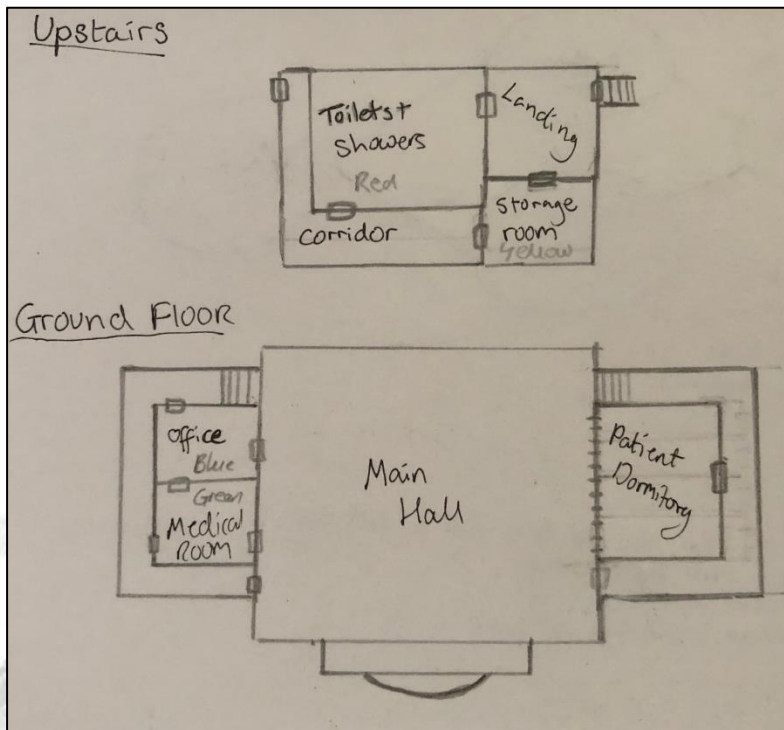 Upstairs
Toilets +
showers
Red
Landing
corridor
Storage
room
Yellow
Ground Floor
office
Blue
Green
Medical
Room
Main
Hall
Patient
Dormitory